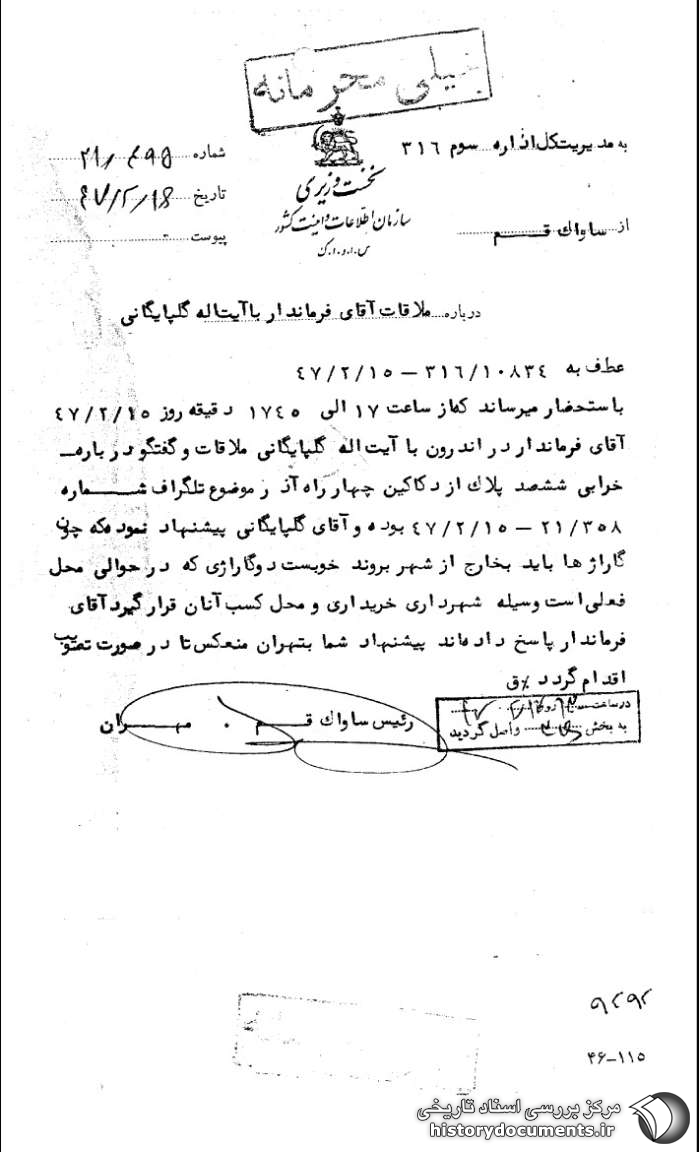 خیلی محرمانه
به مدیریت کل اداره سوم ۳۱۶
نخست وزیری
سازمان اطلاعات و امنیت کشور
س.ا.و.ا.ک
شماره ۲۱/۴۹۵
تاریخ ۴۷/۲/۱۸
پیوست
از ساواک قم
درباره ملاقات آقای فرماندار با آیت اله گلپایگانی
عطف به ۳۱۶/۱۰۸۳۴ – ۴۷/۲/۱۵
باستحضار میرساند که از ساعت ۱۷ الی ۱۷۴۵ دقیقه روز ۴۷/۲/۱۵
آقای فرماندار در اندرون با آیت اله گلپایگانی ملاقات و گفتگو درباره
خرابی ششصد پلاک از دکاکین چهار راه آذر موضوع تلگراف شماره
۲۱/۳۵۸ – ۴۷/۲/۱۵ بوده و آقای گلپایگانی پیشنهاد نموده که چون
گاراژ ها باید بخارج از شهر بروند خوبست دو گاراژی که در حوالی محل
فعلی است وسیله شهرداری خریداری و محل کسب آنان قرار گیرد آقای
فرماندار پاسخ داده اند پیشنهاد شما بتهران منعکس تا در صورت تصویب
اقدام گردد %ق
رئیس ساواک قم . مهران
در ساعت روز
به بخش واصل گردید
۴۶-۱۱۵
مرکز بررسی اسناد تاریخی
historydocuments.ir